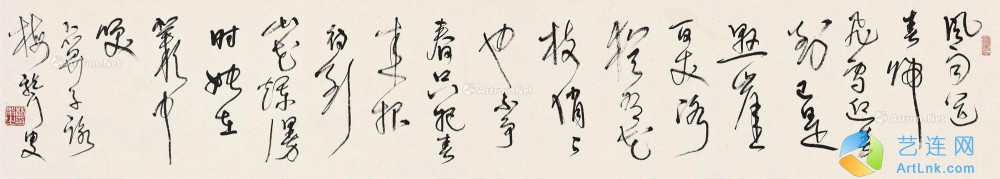 風雨送
春歸
飛雪迎春
到已是
懸崖
百丈冰
猶有花
枝俏々
也不争
春只把春
来报
待到
山花爛漫
时她在
叢中
笑
卜算子詠
梅
艺连网
ArtLnk.com